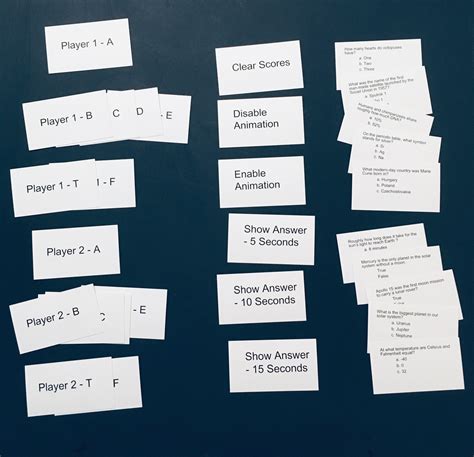 Player 1 - A
Player 1 - B
C
D
- E
Player 1 - T
I - F
Player 2 - A
Player 2 - B
C
- E
Player 2 - T
F
Clear Scores
Disable
Animation
Enable
Animation
Show Answer
- 5 Seconds
Show Answer
- 10 Seconds
Show Answer
- 15 Seconds
How many hearts do octopuses
have?
a. One
b. Two
c. Three
What was the name of the first
man-made satellite launched by the
Soviet Union in 1957?
a. Sputnik 1
Humans and chimpanzees share
roughly how much DNA?
a. 10%
b. 52%
On the periodic table, what symbol
stands for silver?
a. Si
b. Ag
c. Na
What modern-day country was Marie
Curie born in?
a. Hungary
b. Poland
c. Czechoslovakia
Roughly how long does it take for the
sun's light to reach Earth?
a. 8 minutes
Mercury is the only planet in the solar
system without a moon.
True
False
Apollo 15 was the first moon mission
to carry a lunar rover?
True
What is the biggest planet in our
solar system?
a. Uranus
b. Jupiter
c. Neptune
At what temperature are Celsius and
Fahrenheit equal?
a. -40
b. 0
c. 32